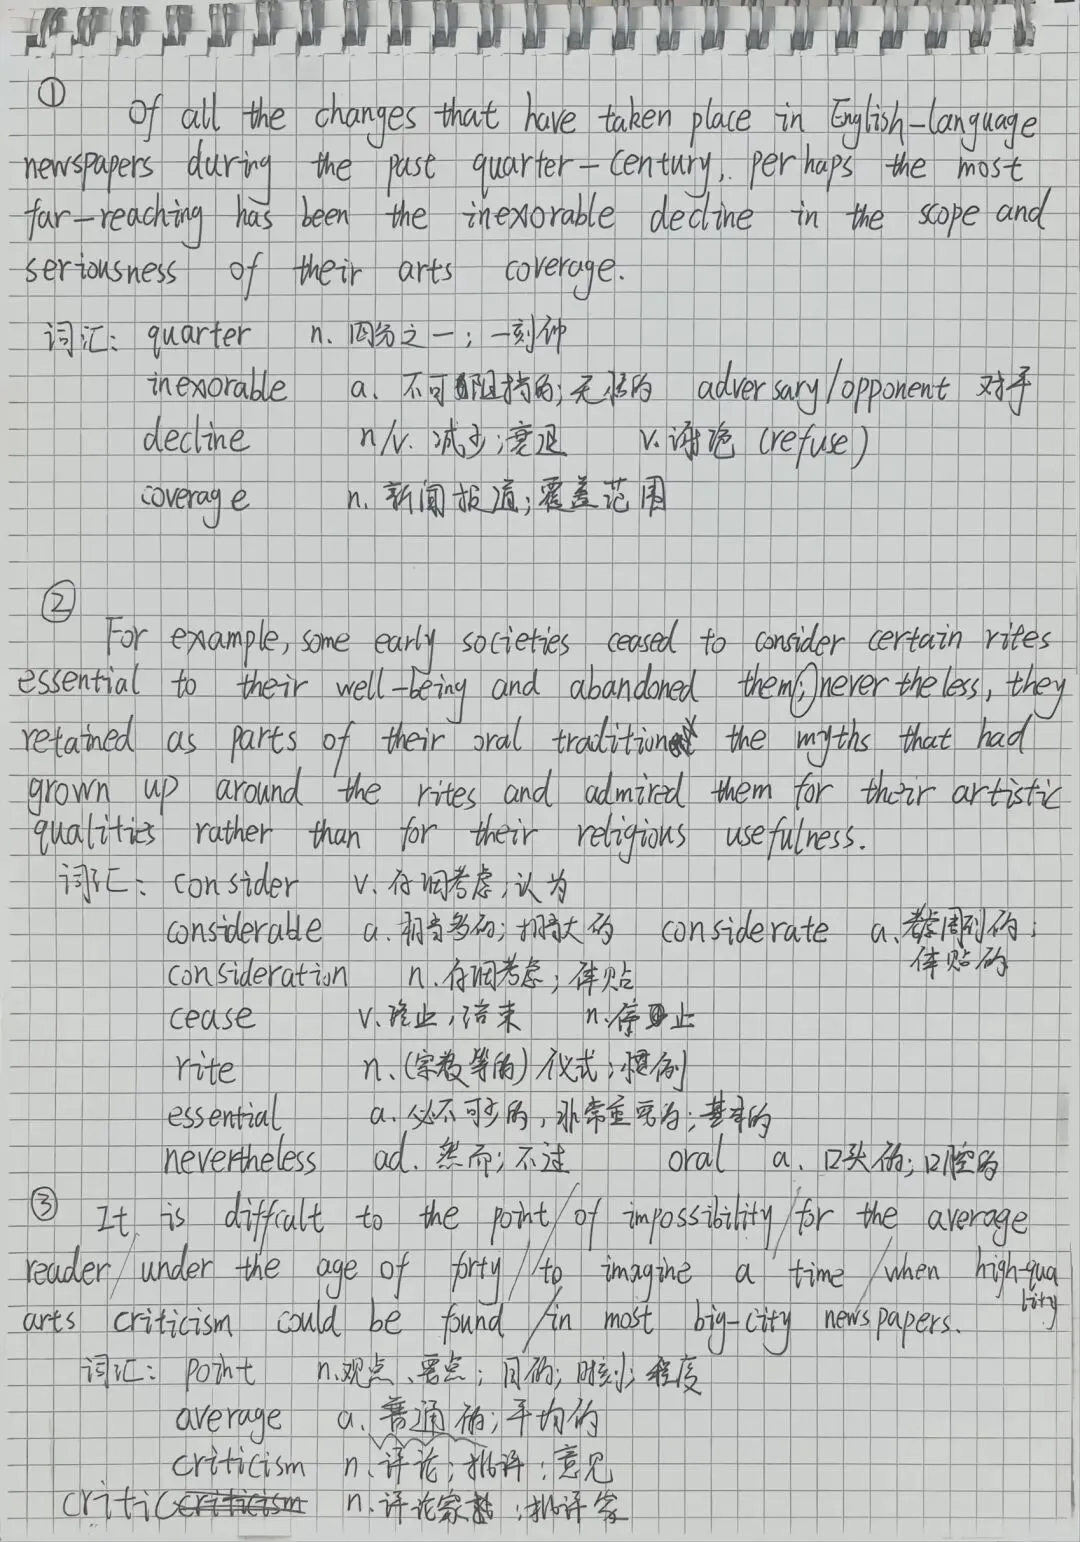 ①
Of all the changes that have taken place in English-language
newspapers during the past quarter-century, perhaps the most
far-reaching has been the inexorable decline in the scope and
seriousness of their arts coverage.
词汇: quarter n. 四分之一; 一刻钟
inexorable a. 不可阻挡的; 无情的 adversary/opponent 对手
decline n/v. 减少; 衰退 v. 谢绝 (refuse)
coverage n. 新闻报道; 覆盖范围
②
For example, some early societies ceased to consider certain rites
essential to their well-being and abandoned them; nevertheless, they
retained as parts of their oral tradition the myths that had
grown up around the rites and admired them for their artistic
qualities rather than for their religious usefulness.
词汇: consider v. 仔细考虑; 认为
considerable a. 相当多的; 相当大的 considerate a. 考虑周到的;
体贴的
consideration n. 仔细考虑; 体贴
cease v. 终止, 结束 n. 停止
rite n. (宗教等的) 仪式; 惯例
essential a. 必不可少的, 非常重要的; 基本的
nevertheless ad. 然而; 不过 oral a. 口头的; 口腔的
③ It is difficult to the point/of impossibility/for the average
reader/under the age of forty//to imagine a time/when high-qua
lity
arts criticism could be found/in most big-city newspapers.
词汇: point n. 观点、要点; 目的; 时刻; 程度
average a. 普通的; 平均的
criticism n. 评论; 批评; 意见
critic n. 评论家; 批评家